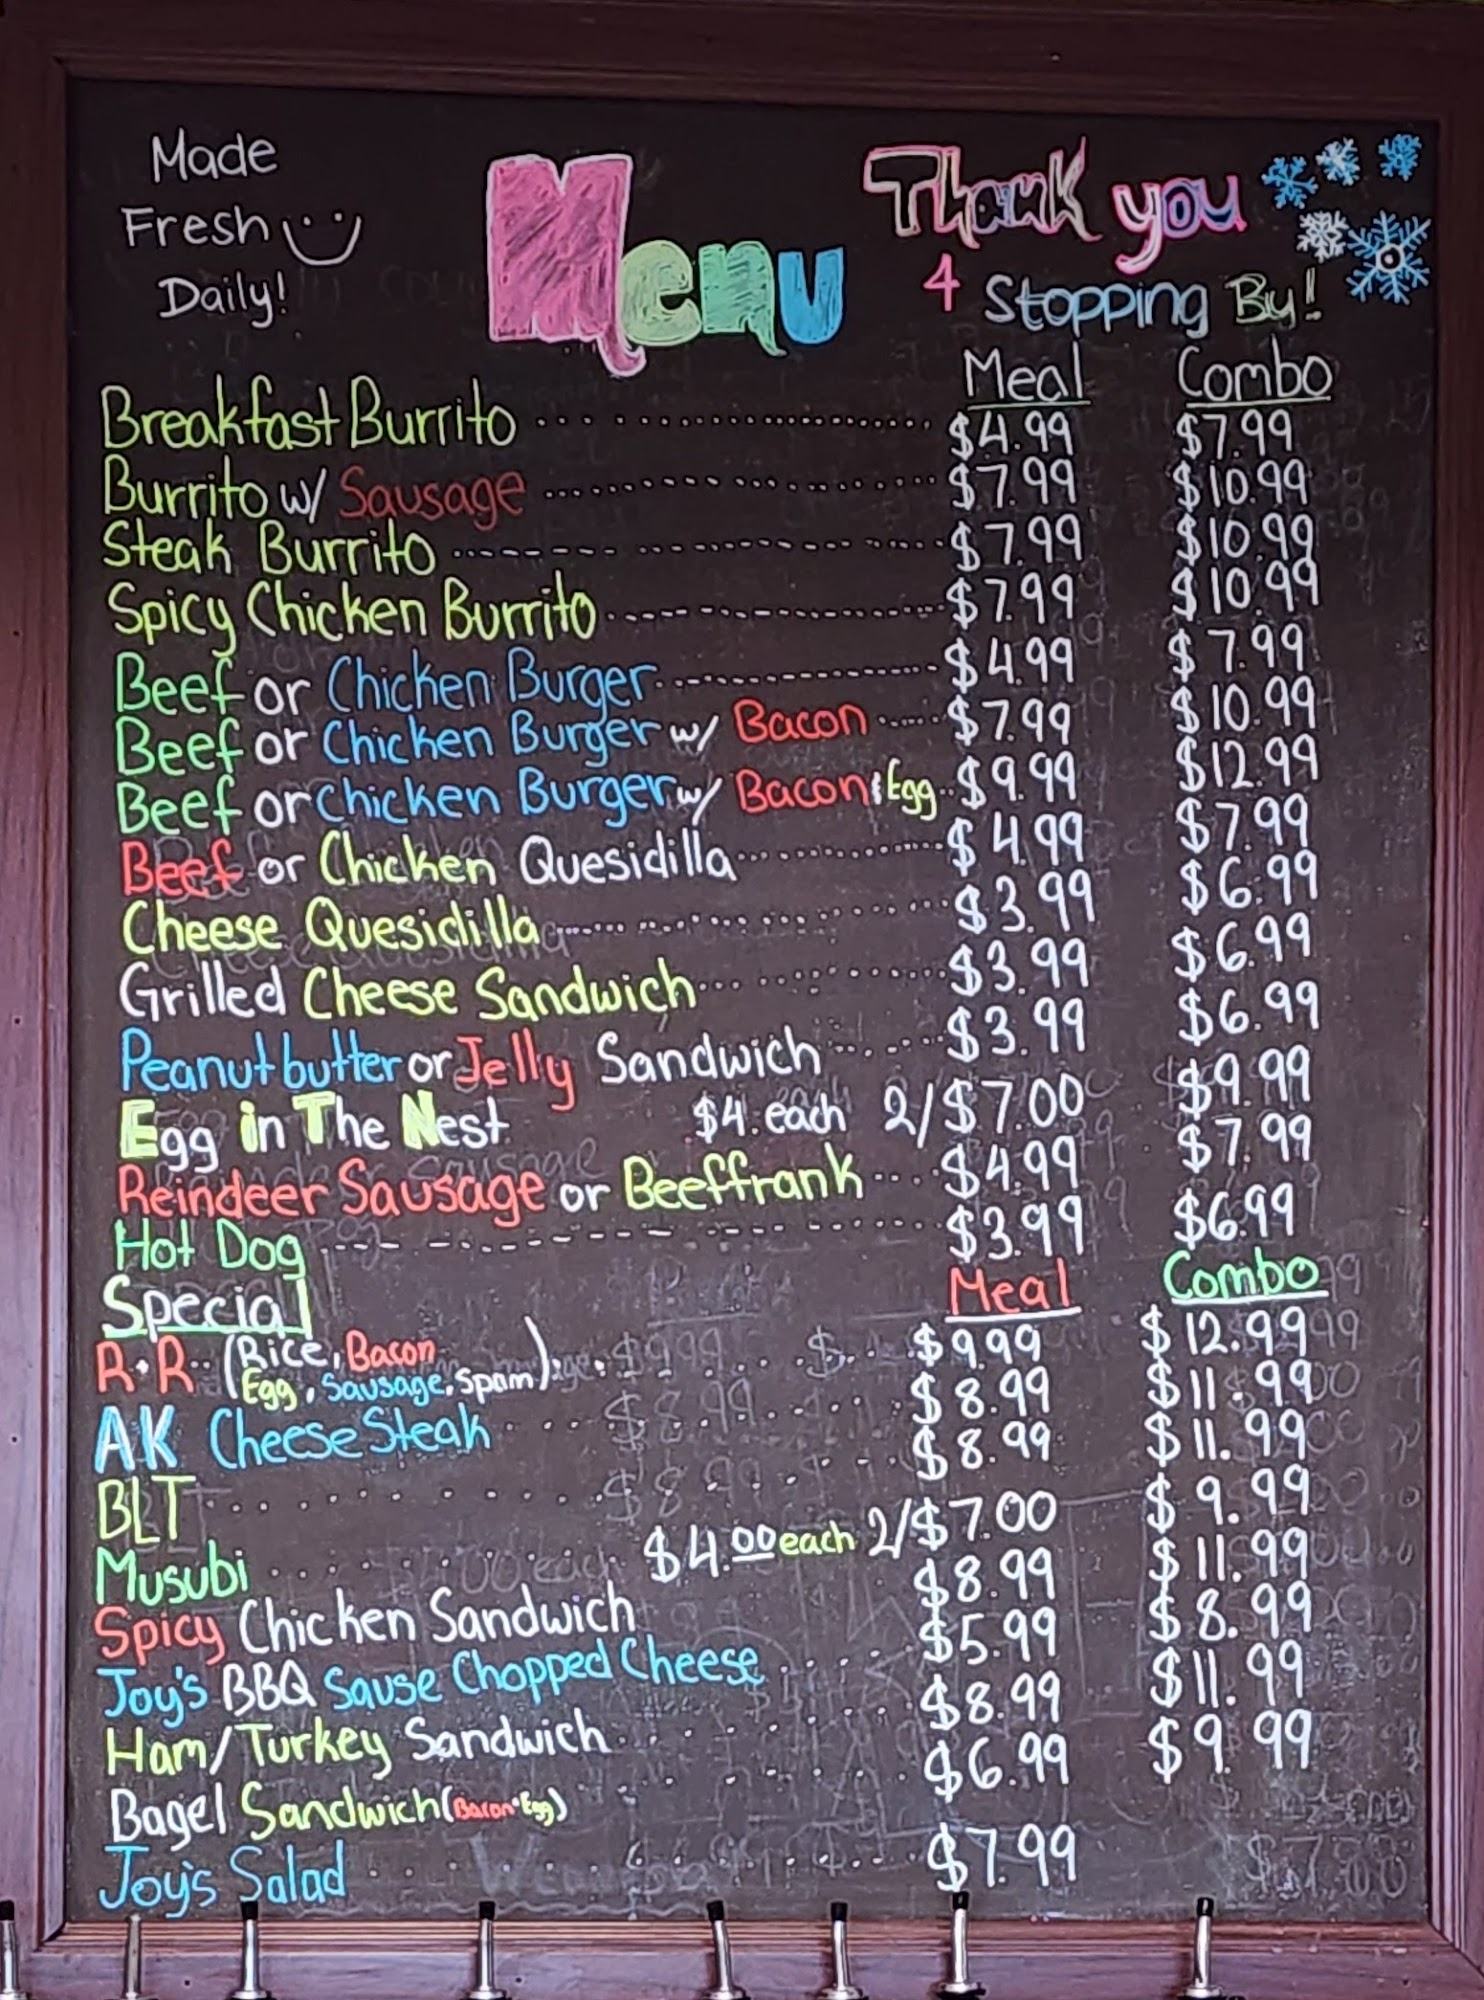 Made
Fresh
Daily!
Menu
Thank you
4 Stopping By!
Meal Combo
Breakfast Burrito $4.99 $7.99
Burrito w/ Sausage $7.99 $10.99
Steak Burrito $7.99 $10.99
Spicy Chicken Burrito $7.99 $10.99
Beef or Chicken Burger $4.99 $7.99
Beef or Chicken Burger w/ Bacon $7.99 $10.99
Beef or Chicken Burger w/ Bacon & Egg $9.99 $12.99
Beef or Chicken Quesidilla $4.99 $7.99
Cheese Quesidilla $3.99 $6.99
Grilled Cheese Sandwich $3.99 $6.99
Peanut butter or Jelly Sandwich $3.99 $6.99
Egg in The Nest $4. each 2/$7.00 $9.99
Reindeer Sausage or Beeffrank $4.99 $7.99
Hot Dog $3.99 $6.99
Special Meal Combo
R • R (Rice, Bacon $9.99 $12.99
Egg, Sausage, Spam)
AK Cheese Steak $8.99 $11.99
BLT $8.99 $11.99
Musubi $4.00 each 2/$7.00 $9.99
Spicy Chicken Sandwich $8.99 $11.99
Joy's BBQ Sause Chopped Cheese $5.99 $8.99
Ham/Turkey Sandwich $8.99 $11.99
Bagel Sandwich (Bacon • Egg) $6.99 $9.99
Joy's Salad $7.99